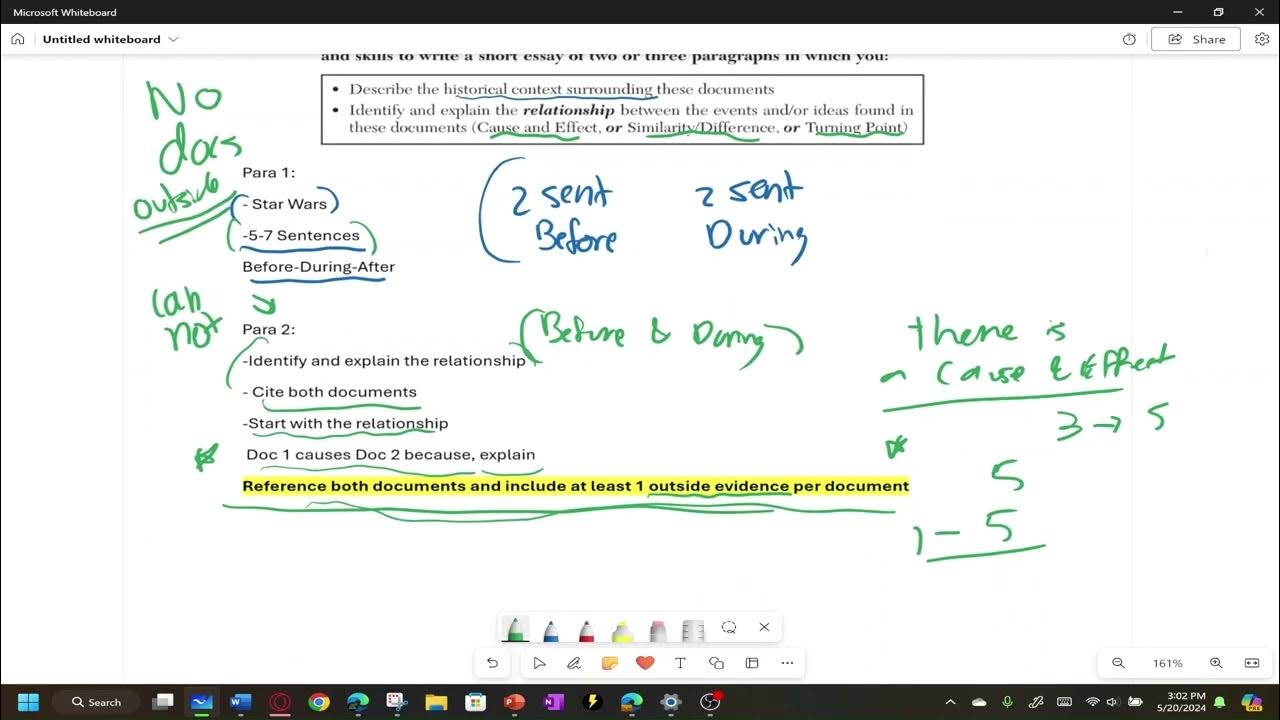 Microsoft Whiteboard
Untitled whiteboard
Share
and skills to write a short essay of two or three paragraphs in which you:
• Describe the historical context surrounding these documents
• Identify and explain the relationship between the events and/or ideas found in
these documents (Cause and Effect, or Similarity/Difference, or Turning Point)
No
docs
outside
Para 1:
- Star Wars
-5-7 Sentences
Before-During-After
2 sent
Before
2 sent
During
can
not
Para 2:
(Before & During)
-Identify and explain the relationship
- Cite both documents
-Start with the relationship
Doc 1 causes Doc 2 because, explain
Reference both documents and include at least 1 outside evidence per document
there is
a Cause & Effect
3 → 5
5
1 - 5
161%
Search
3:02 PM
5/20/2024